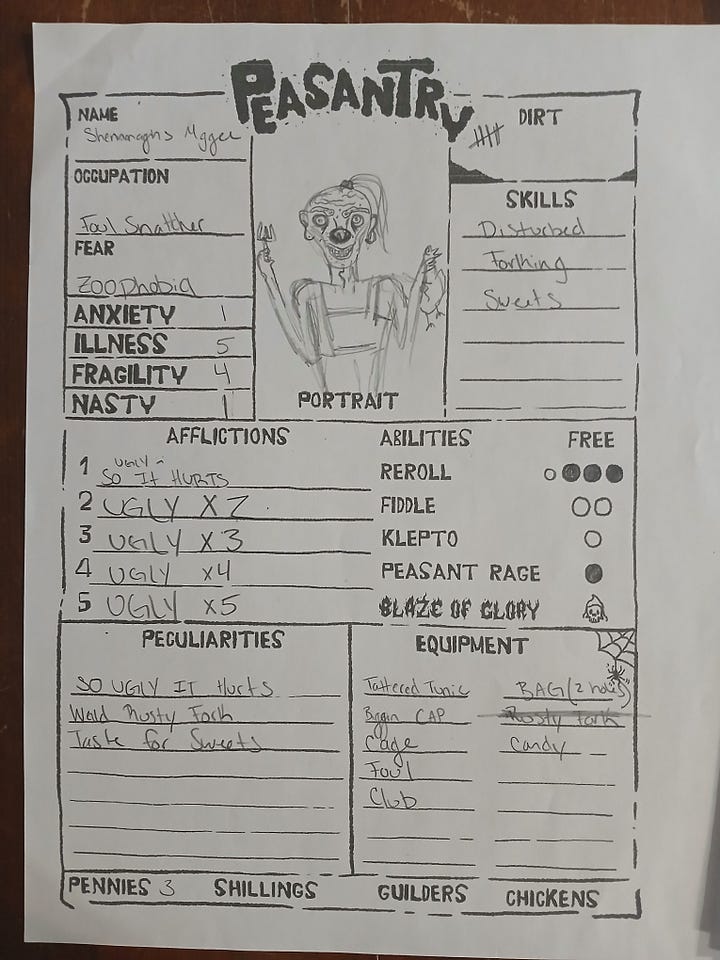 PEASANTRY
NAME
Shenanagins Mggee
OCCUPATION
Foul Snatcher
FEAR
Zoophobia
ANXIETY 1
ILLNESS 5
FRAGILITY 4
NASTY 1
PORTRAIT
DIRT
SKILLS
Disturbed
Forthing
Sweets
AFFLICTIONS
1 UGLY - SO IT HURTS
2 UGLY X2
3 UGLY X3
4 UGLY X4
5 UGLY X5
ABILITIES FREE
REROLL
FIDDLE
KLEPTO
PEASANT RAGE
BLAZE OF GLORY
PECULIARITIES
SO UGLY IT Hurts
Rusty Fork
Taste for Sweets
EQUIPMENT
Tattered Tunic
Biggin CAP
Cage
Foul
Club
BAG (2 holes)
Rusty Fork
Candy
PENNIES 3 SHILLINGS GUILDERS CHICKENS